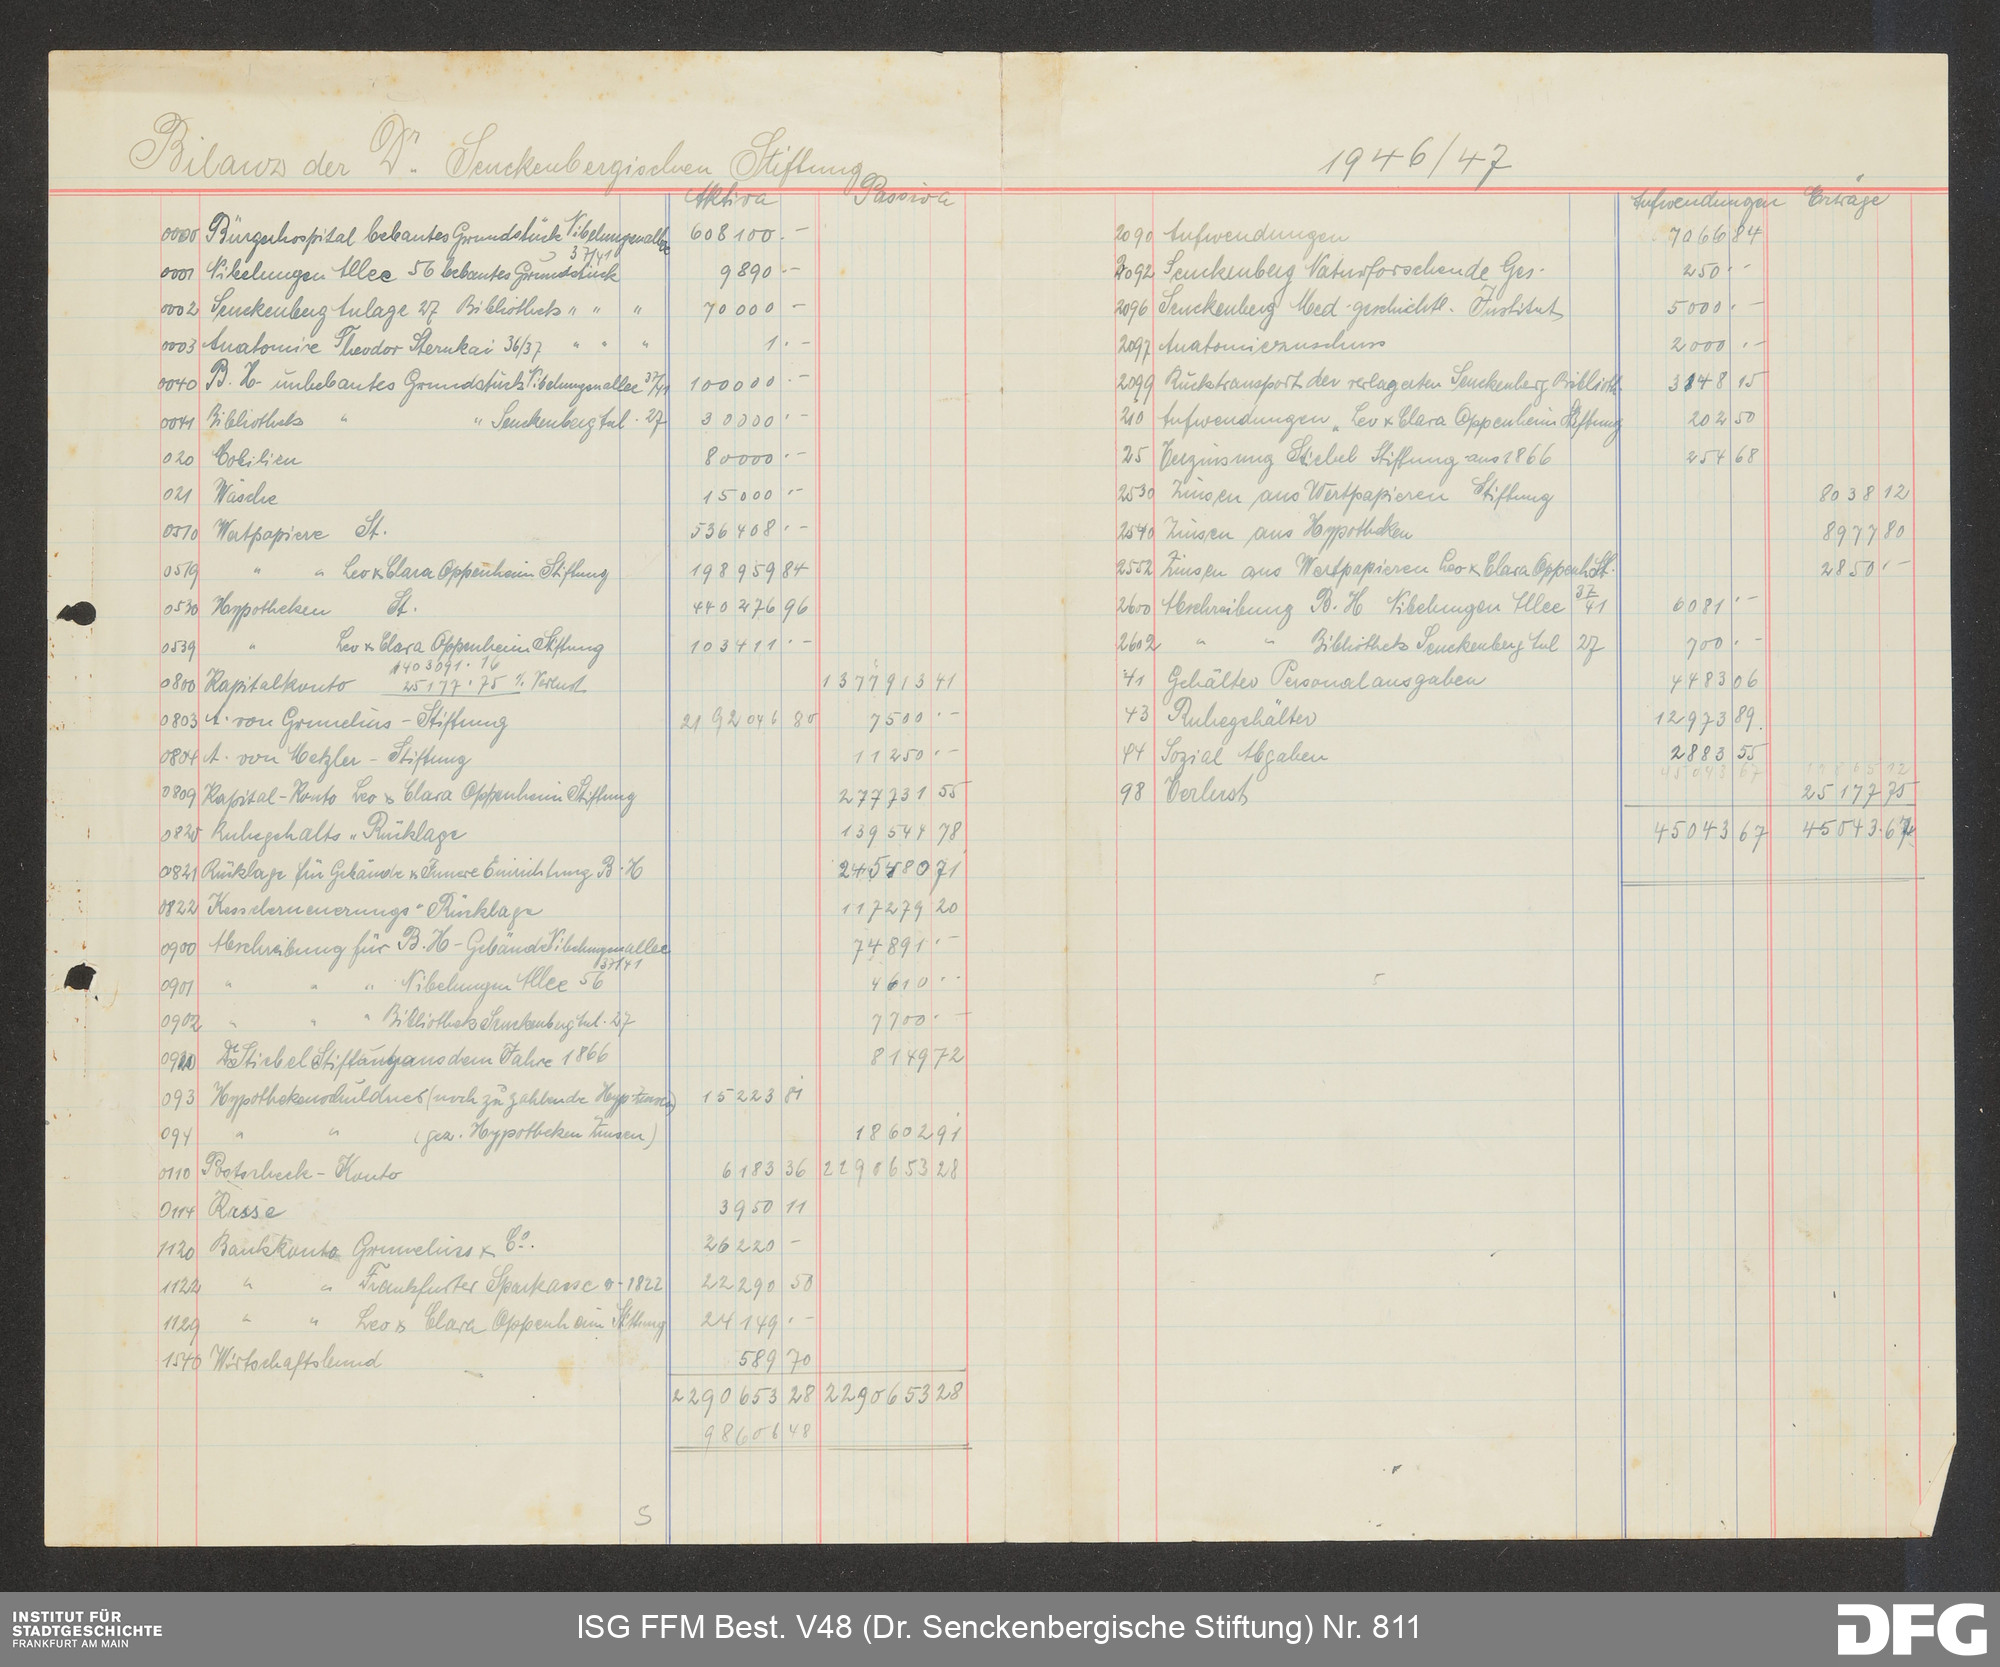 Bilanz der Dr. Senckenbergischen Stiftung
Aktiva Passiva
0000 Bürgerhospital bebautes Grundstück Nibelungenallee 37/41 608100.–
0001 Nibelungen Allee 56 bebautes Grundstück 9890.–
0002 Senckenberg Anlage 27 Bibliotheks " " " 70000 –
0003 Anatomie Theodor Sternkai 36/37 " " " 1.–
0040 B. H. unbebautes Grundstück Nibelungenallee 37/41 100000.–
0041 Bibliotheks " " Senckenberg Anl. 27 30000.–
020 Mobilien 80000.–
021 Wäsche 15000.–
0510 Wertpapiere St. 536408.–
0519 " " Leo & Clara Oppenheim Stiftung 198959 84
0530 Hypotheken St. 440276 96
0539 " Leo & Clara Oppenheim Stiftung 103411.–
1403091.16
0800 Kapitalkonto 25177.75 ./. Verlust 1377913 41
0803 A. von Grunelius – Stiftung 2192046 80 7500.–
0804 A. von Metzler – Stiftung 11250.–
0809 Kapital-Konto Leo & Clara Oppenheim Stiftung 277731 55
0820 Ruhegehalts "Rücklage 139544 78
0821 Rücklage für Gebäude & Innere Einrichtung B. H 245480 71
0822 Kesselerneuerungs "Rücklage 117279 20
0900 Abschreibung für B. H – Gebäude Nibelungenallee 37/41 74891.–
0901 " " " Nibelungen Allee 56 4610..
0902 " " " Bibliotheks Senckenberg Anl. 27 7700.–
0920 Dr. Stiebel Stiftung aus dem Jahre 1866 8149 72
093 Hypothekenschuldner (noch zu zahlende Hyp. Zinsen) 15223 81
094 " " (gez. Hypotheken Zinsen) 18602 91
0110 Postscheck – Konto 6183 36 2290653 28
0114 Kasse 3950 11
1120 Bankkonto Grunelius & Co. 26220 –
1122 " " Frankfurter Sparkasse v. 1822 22290 50
1129 " " Leo & Clara Oppenheim Stiftung 24149.–
1540 Wirtschaftsbund 589 70
2290653 28 2290653 28
98606 48
5
1946/47
Aufwendungen Erträge
2090 Aufwendungen 7066 84
2092 Senckenberg Naturforschende Ges. 250.–
2096 Senckenberg Med. geschichtl. Institut 5000.–
2097 Anatomiezuschuss 2000.–
2099 Rücktransport der verlagerten Senckenberg Biblioth. 3148 15
210 Aufwendungen "Leo & Clara Oppenheim Stiftung 202 50
25 Verzinsung Stiebel Stiftung aus 1866 254 68
2530 Zinsen aus Wertpapieren Stiftung 8038 12
2540 Zinsen aus Hypotheken 8977 80
2552 Zinsen aus Wertpapieren Leo & Clara Oppenh. St. 2850.–
2600 Abschreibung B. H Nibelungen Allee 37/41 6081.–
2602 " " Bibliotheks Senckenberg Anl 27 700.–
41 Gehälter Personalausgaben 4483 06
43 Ruhegehälter 12973 89
44 Sozial Abgaben 2883 55
45043 67 19865 92
98 Verlust 25177 75
45043 67 45043.67
5
INSTITUT FÜR
STADTGESCHICHTE
FRANKFURT AM MAIN
ISG FFM Best. V48 (Dr. Senckenbergische Stiftung) Nr. 811
DFG